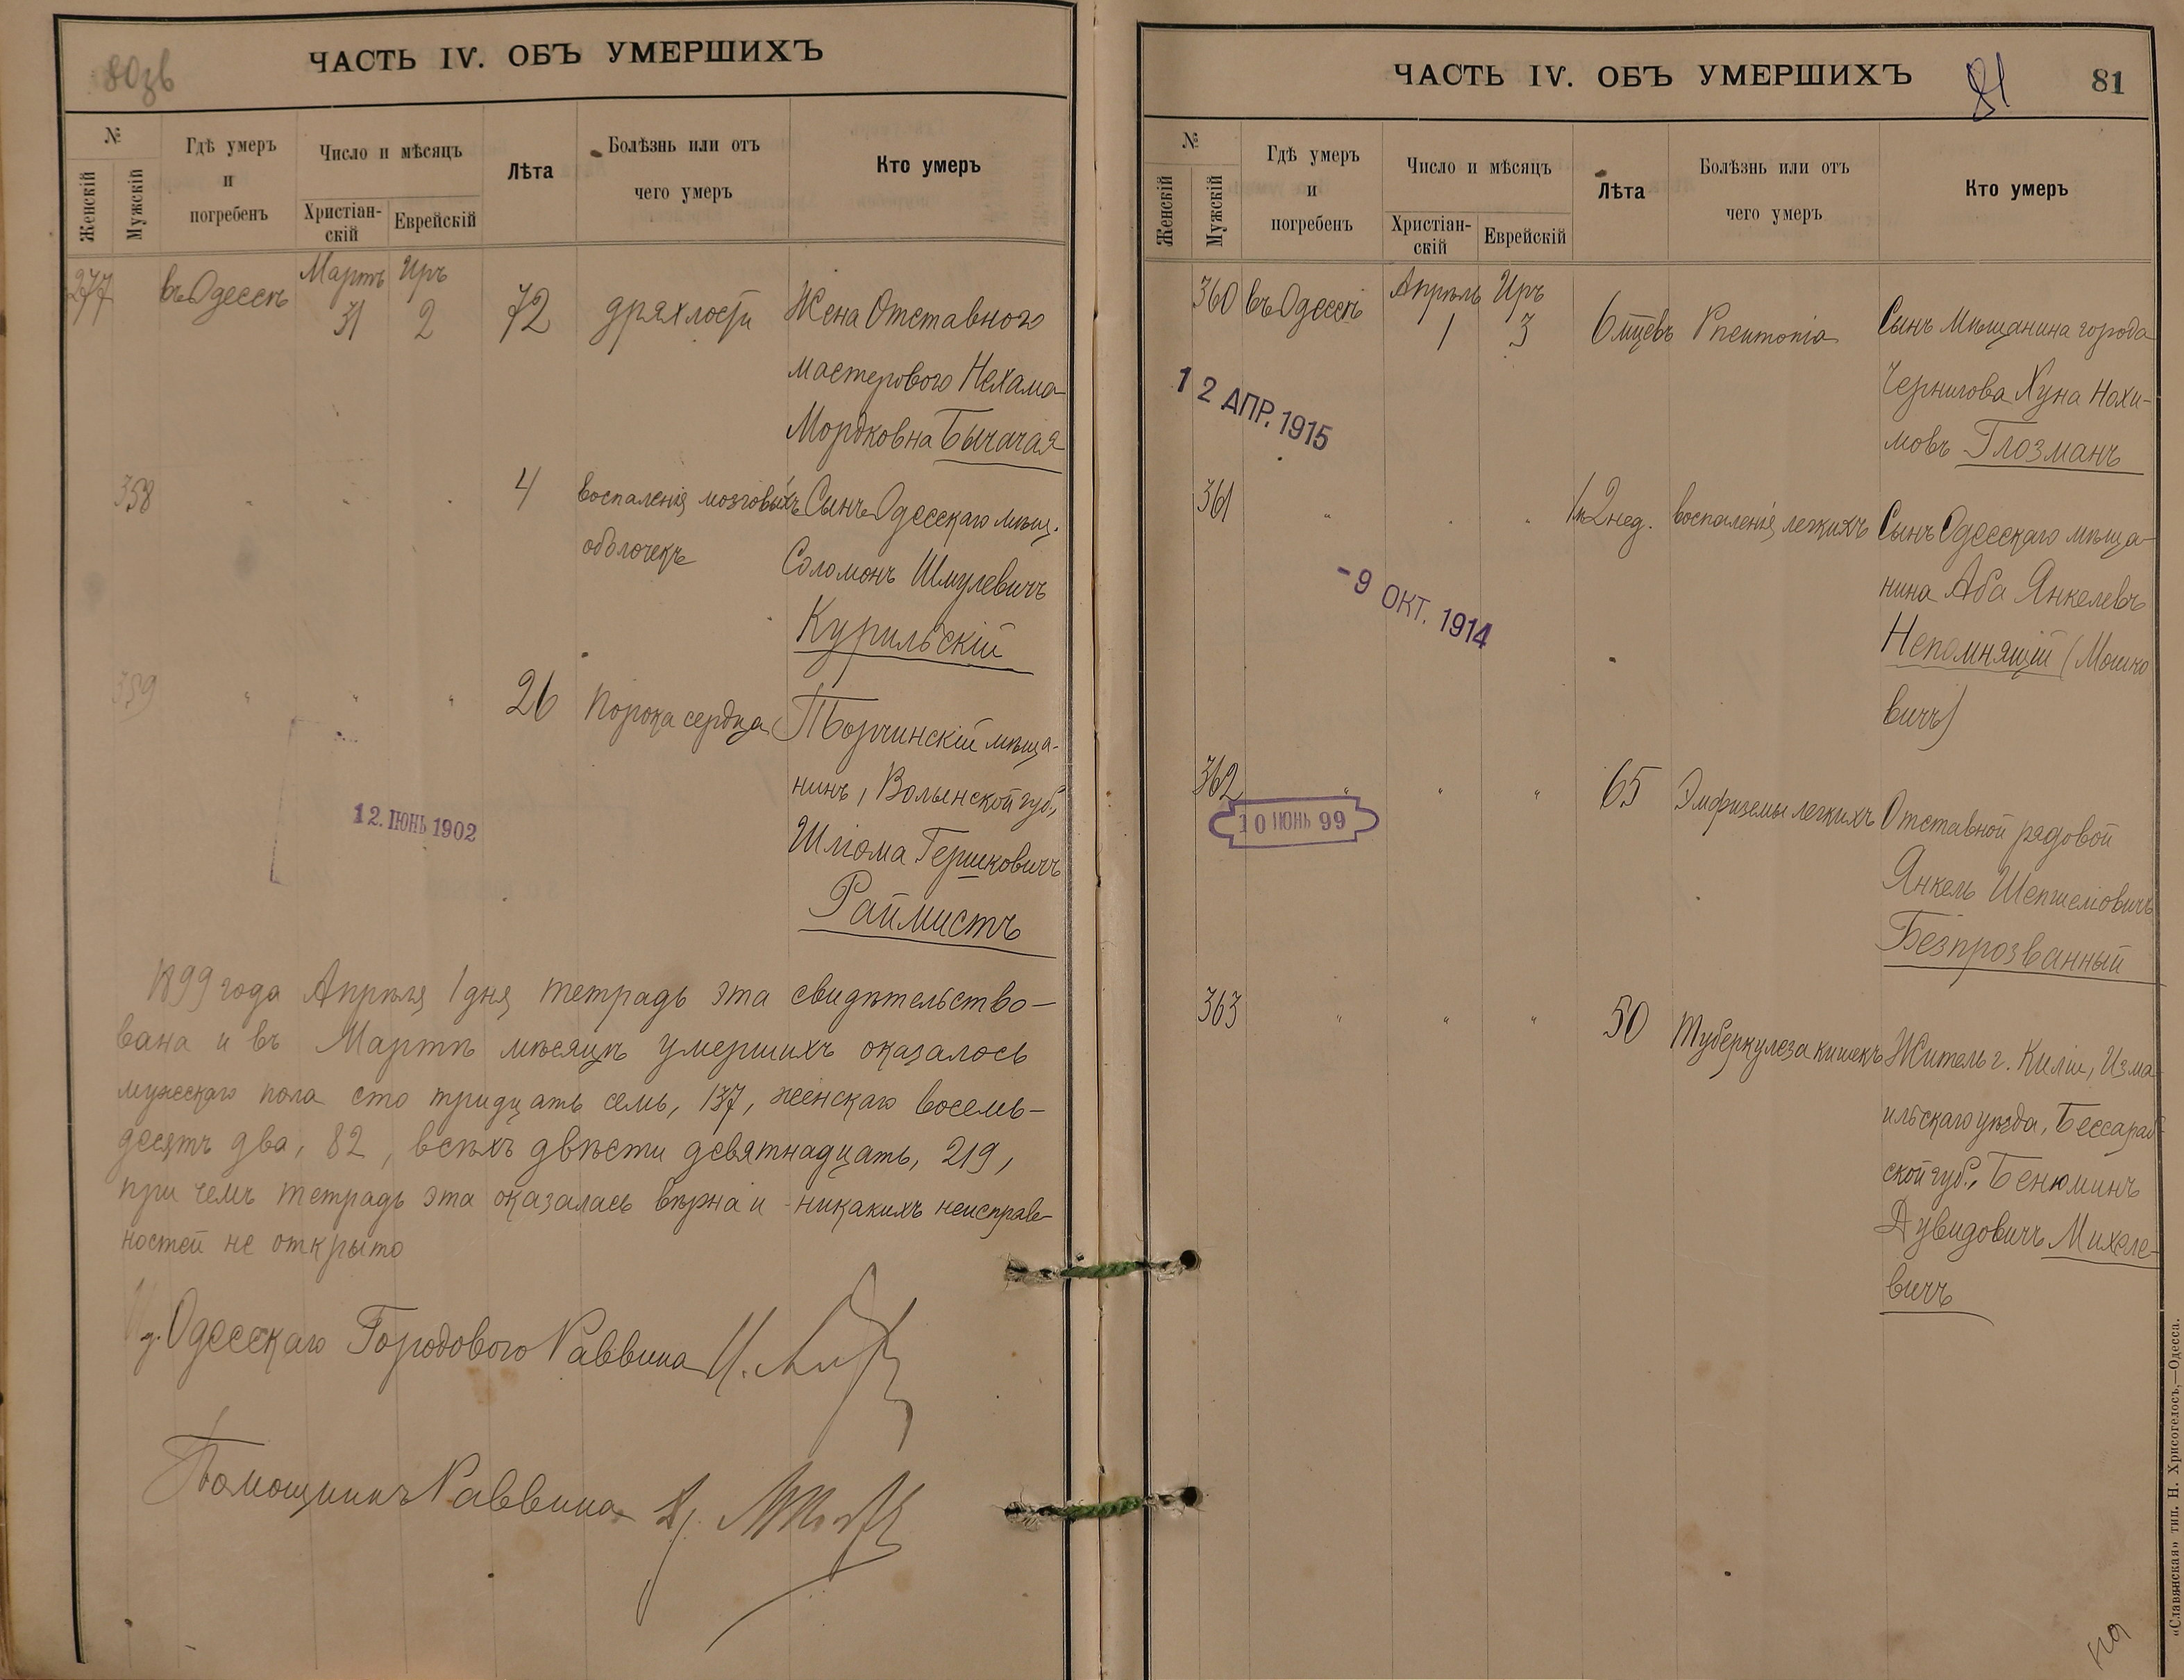 80зв
ЧАСТЬ IV. ОБЪ УМЕРШИХЪ
№
Женскій
Мужскій
Гдѣ умеръ
и
погребенъ
Число и мѣсяцъ
Христіан-
скій
Еврейскій
Лѣта
Болѣзнь или отъ
чего умеръ
Кто умеръ
277 въ Одессѣ Мартъ 31 Иръ 2 72 дряхлости Жена Отставного
мастерового Нехама
Мордковна Бычачая
358 " " " 4 воспаленія мозговыхъ Сынъ Одесскаго мѣщ.
оболочекъ Соломонъ Шмулевичъ
Курильскій
359 " " " 26 Порока сердца мѣща-
нинъ, Волынской губ.,
Шлiома Гершковичъ
Раймистъ
12. ІЮНЬ 1902
1899 года Апрѣля 1 дня тетрадь эта свидѣтельство-
вана и въ Мартѣ мѣсяцѣ умершихъ оказалось
мужескаго пола сто тридцать семь, 137, женскаго восемь-
десятъ два, 82, всѣхъ двѣсти девятнадцать, 219,
при чемъ тетрадь эта оказалась вѣрна и никакихъ неисправ-
ностей не открыто
Одесскаго Городового Раввина
Помощникъ Раввина
ЧАСТЬ IV. ОБЪ УМЕРШИХЪ
81
81
№
Женскій
Мужскій
Гдѣ умеръ
и
погребенъ
Число и мѣсяцъ
Христіан-
скій
Еврейскій
Лѣта
Болѣзнь или отъ
чего умеръ
Кто умеръ
360 въ Одессѣ Апрѣль 1 Иръ 3 6 мцевъ Pneumonia Сынъ Мѣщанина города
Чернигова Хуна Нохи-
мовъ Глозманъ
12 АПР. 1915
361 " " " 2 нед. воспаленія легкихъ Сынъ Одесскаго мѣща-
нина Аба Янкелевъ
Непомнящій (Мошко
вичъ)
-9 ОКТ. 1914
362 " " " 65 Эмфиземы легкихъ Отставной рядовой
Янкель Шепшеліовичъ
Безпрозванный
10 ІЮНЬ 99
363 " " " 50 Туберкулеза кишекъ Житель г. Киліи, Изма-
ильскаго уѣзда, Бессараб-
ской губ., Бенюминъ
Дувидовичъ Михеле-
вичъ
«Славянская» тип. Н. Хрисогелосъ,—Одесса.